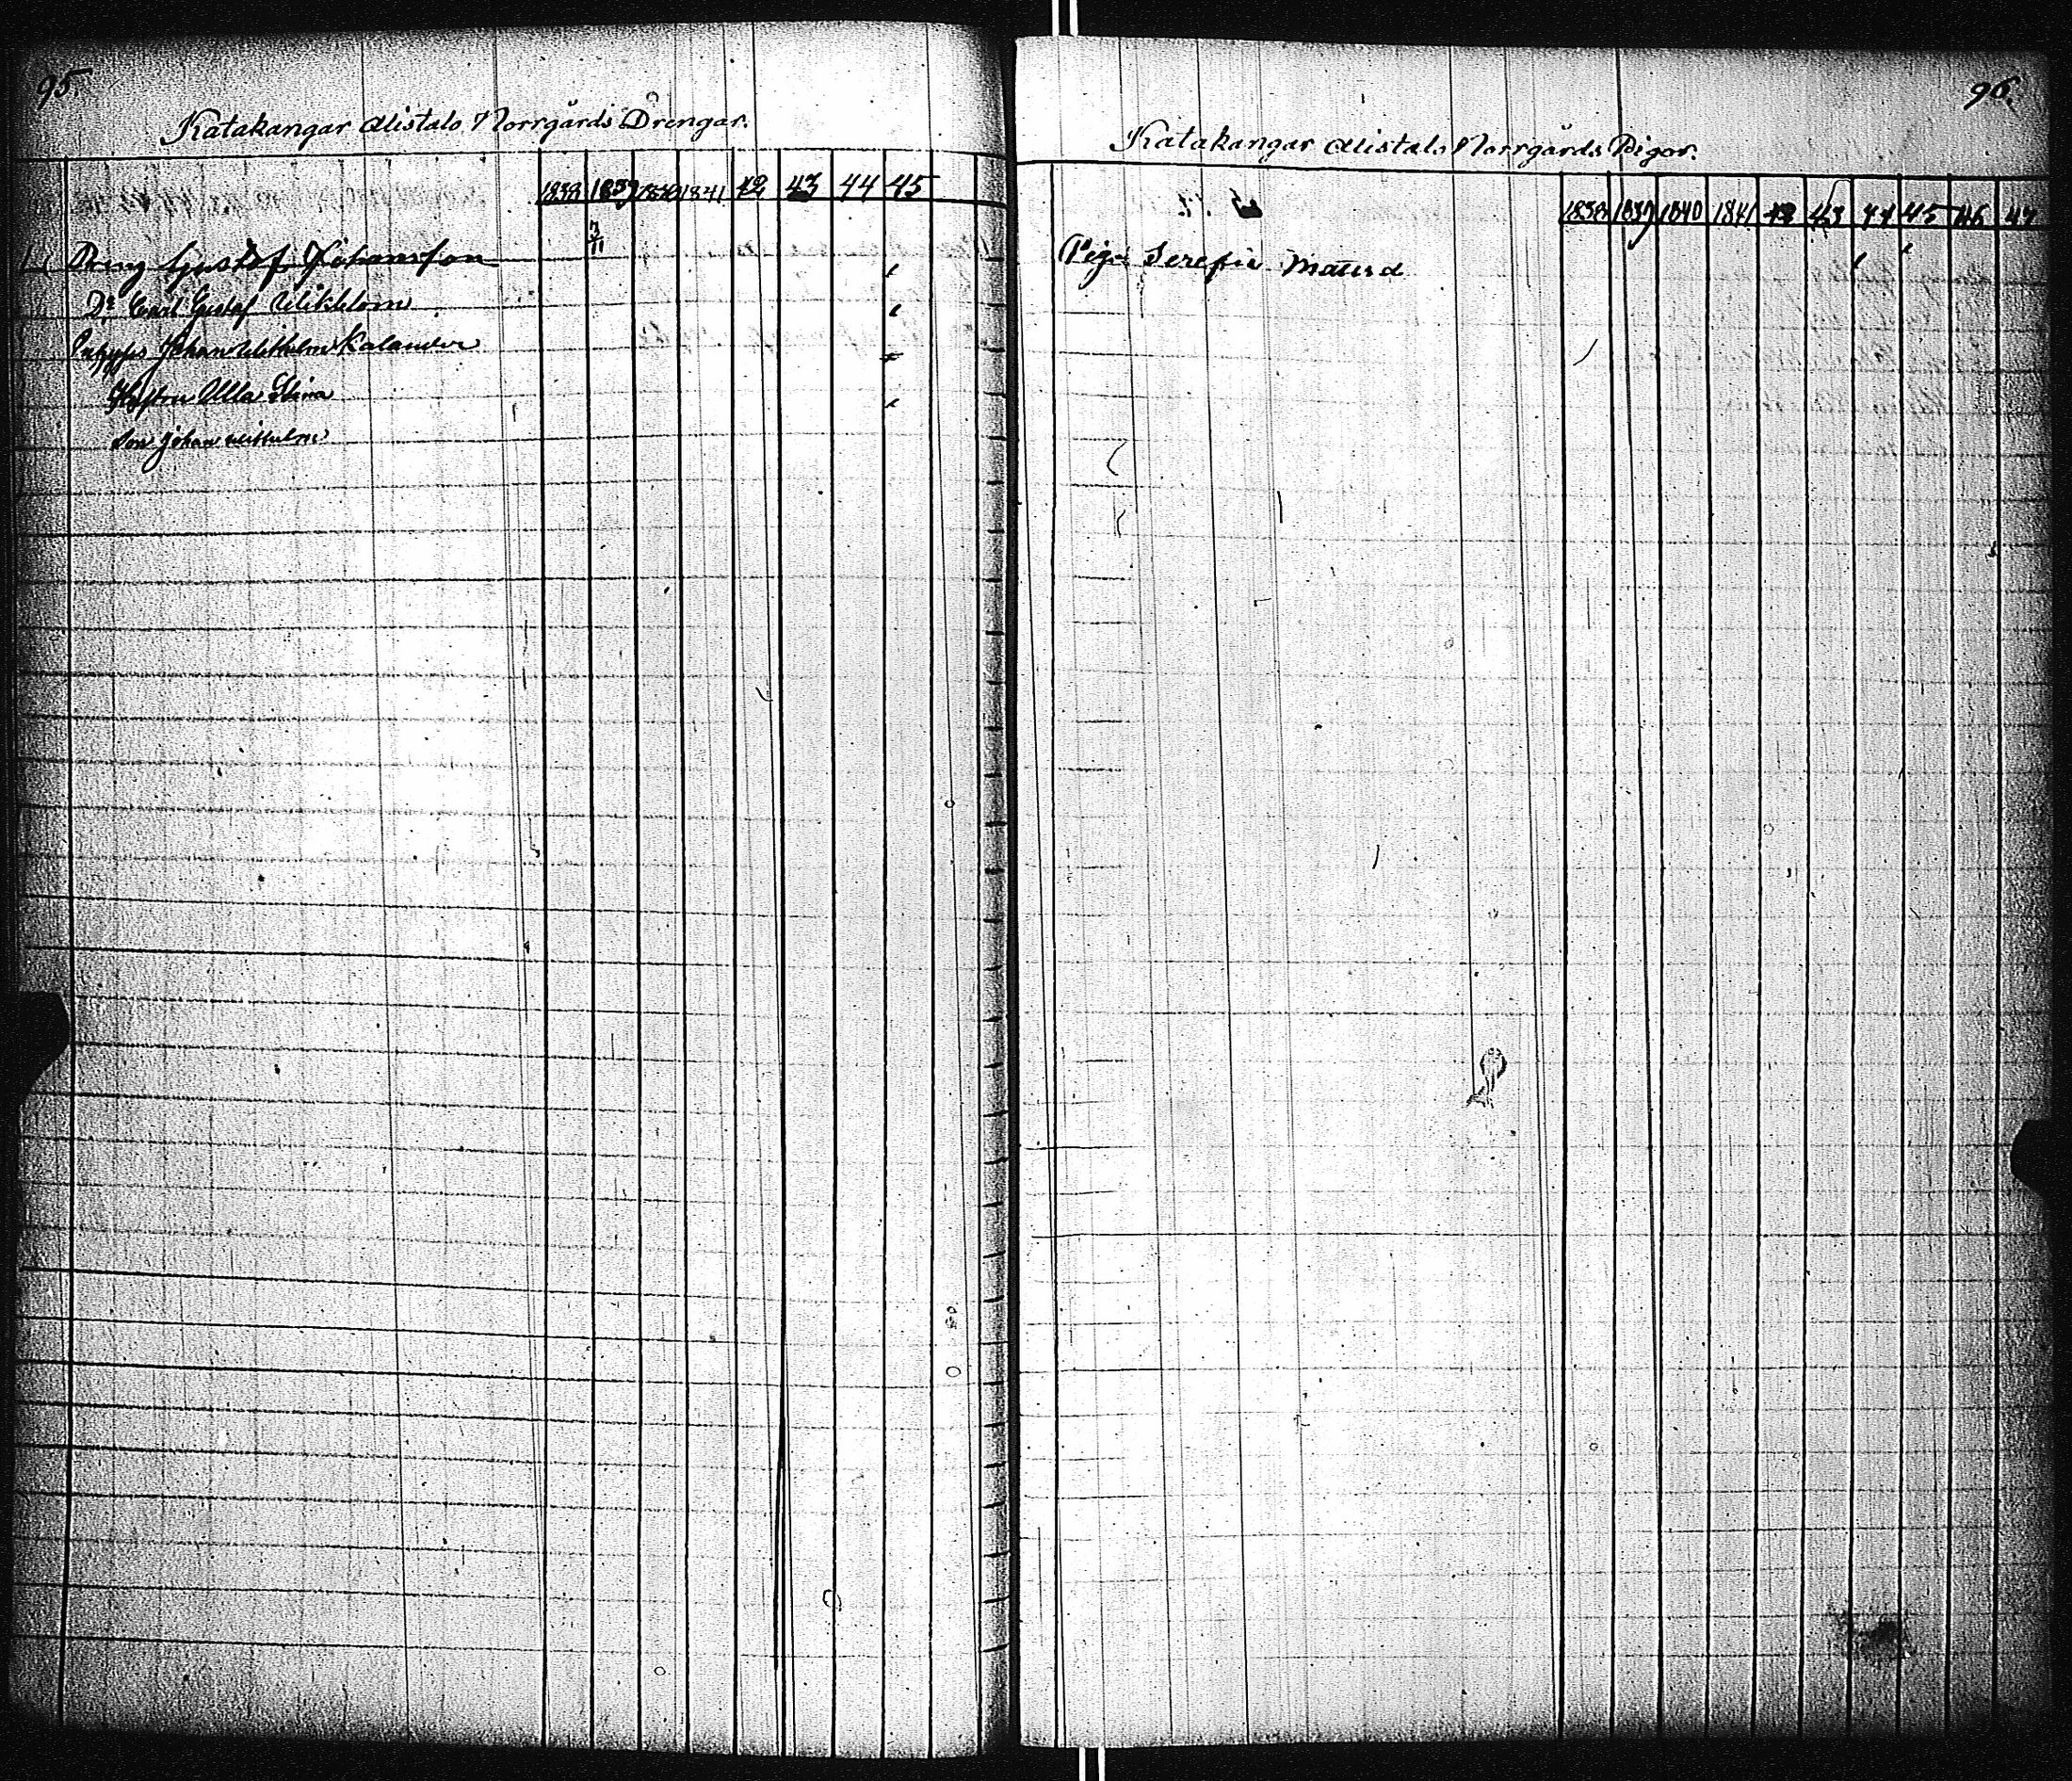 95.
Katakangar Alistalo Norrgårds Drengar.
1838 1839 1840 1841 42 43 44 45
Dreng Gustaf Johansson 3/11
Dº Carl Gustaf Wikblom
Johan Wilhelm Kalander
Hustru Ulla Stina
Son Johan Wilhelm
96.
Katakangar Alistalo Norrgårds Pigor.
1838 1839 1840 1841 42 43 44 45 46 47
Piga Serefia